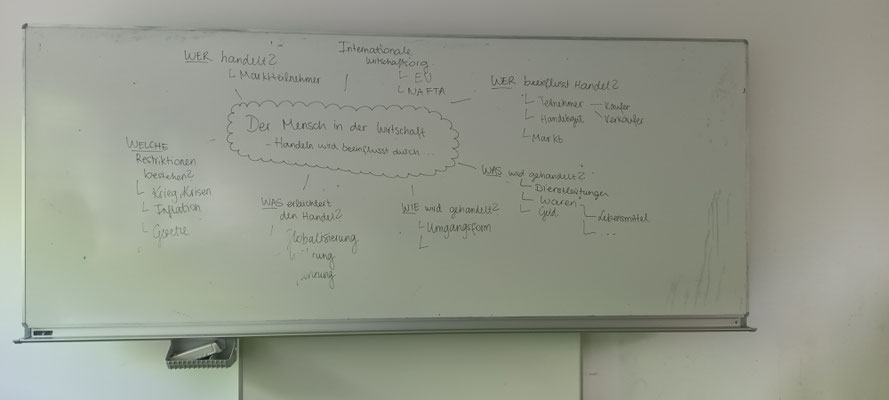 WER handelt?
Marktteilnehmer
Internationale
Wirtschaftsorg.
EU
NAFTA
WER beeinflusst Handel?
Teilnehmer
Käufer
Verkäufer
Markt
Der Mensch in der Wirtschaft
- Handeln wird beeinflusst durch ...
WELCHE
Restriktionen
bestehen?
Krieg, Krisen
Inflation
Gesetze
WAS erleichtert
den Handel?
lobalisierung
rung
WIE wird gehandelt?
Umgangsform
WAS wird gehandelt?
Dienstleistungen
Waren
Geld
Lebensmittel
...